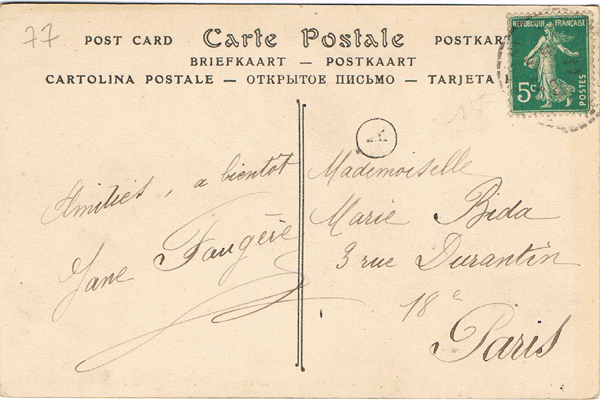 77
POST CARD Carte Postale POSTKART
BRIEFKAART — POSTKAART
CARTOLINA POSTALE — ОТКРЫТОЕ ПИСЬМО — TARJETA
RÉPUBLIQUE FRANÇAISE
5c
POSTES
15
Amitiés, a bientôt
Jane Faugère
Mademoiselle
Marie Bida
3 rue Durantin
18e
Paris